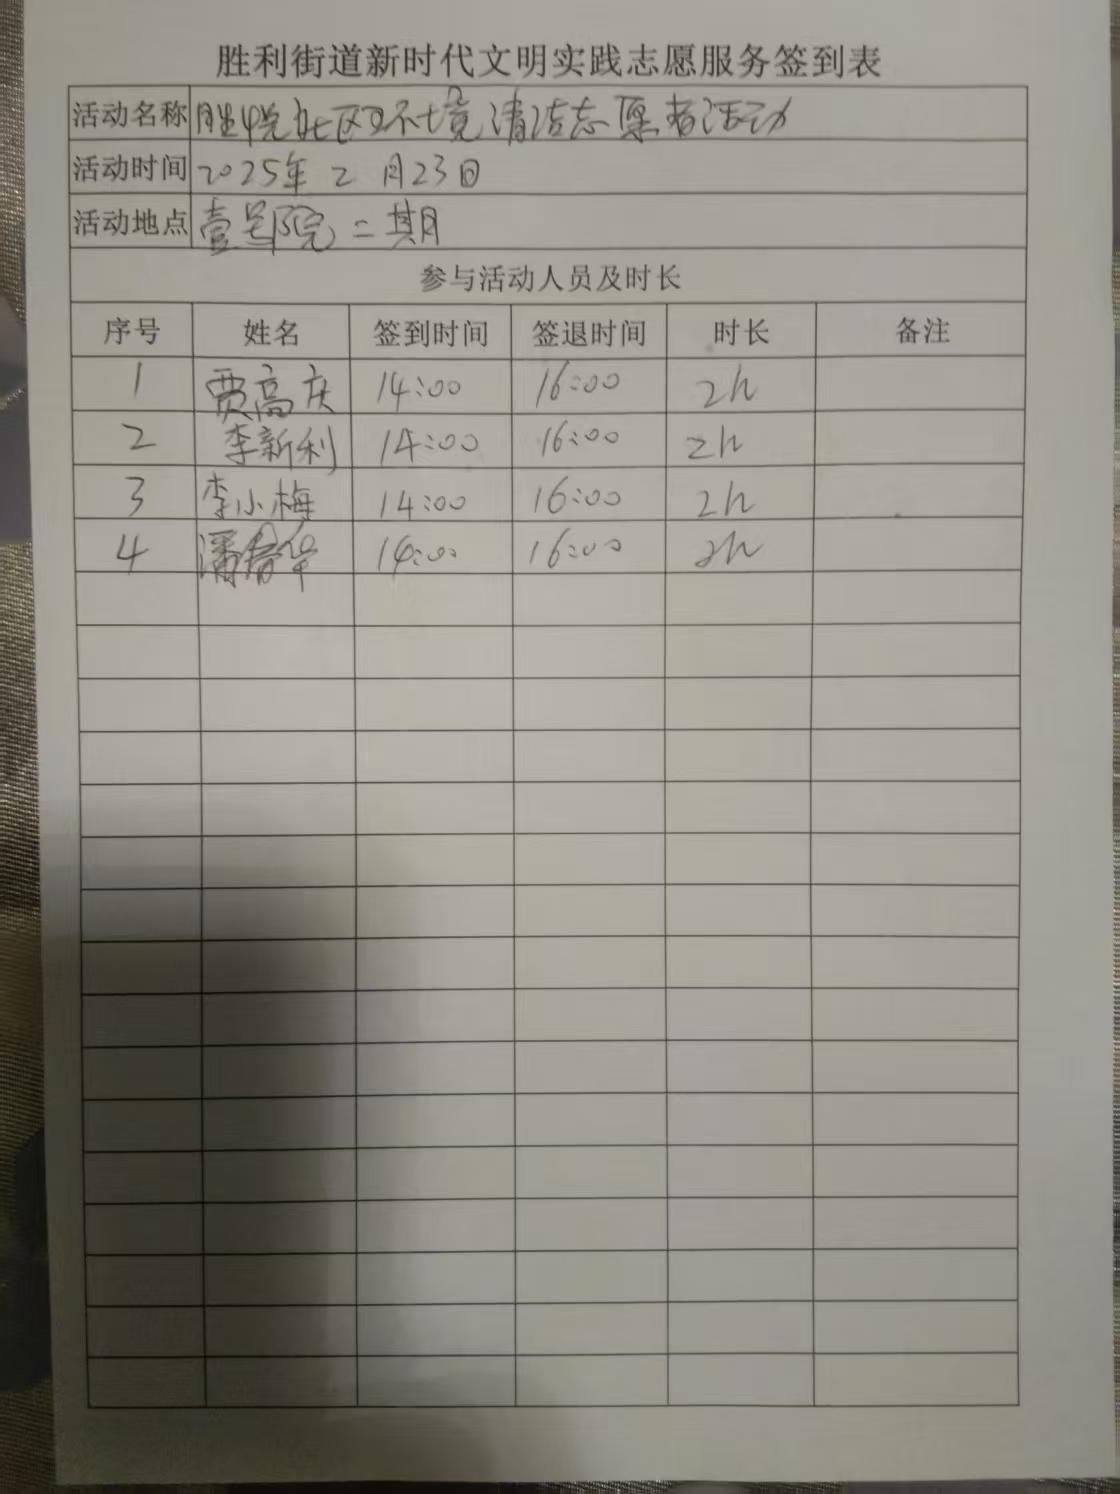 胜利街道新时代文明实践志愿服务签到表
活动名称 社区环境清洁志愿者活动
活动时间 2025年2月23日
活动地点 壹号院二期
参与活动人员及时长
序号 姓名 签到时间 签退时间 时长 备注
1 贾高庆 14:00 16:00 2h
2 李新利 14:00 16:00 2h
3 李小梅 14:00 16:00 2h
4 潘春华 14:00 16:00 2h